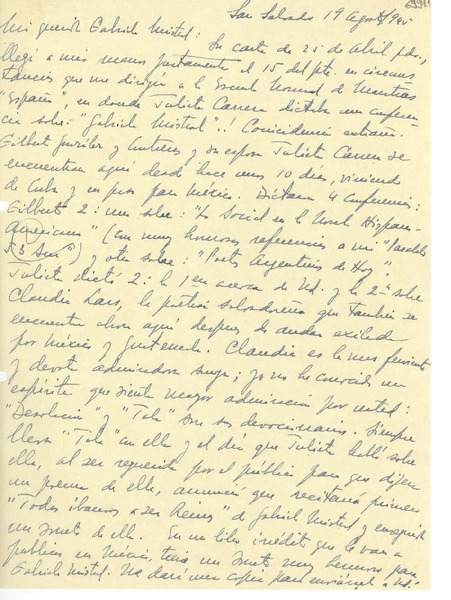 69911
San Salvador 19 agosto/945
Mi querida Gabriela Mistral:
Su carta de 25 de Abril pdo.,
llegó a mis manos justamente el 15 del pte. en circuns
tancias que me dirigía a la Escuela Normal de Maestras
"España", en donde Julieta Carrera dictaba una conferen
cia sobre: "Gabriela Mistral"..! Coincidencia extraña.
Gilbert González y Contreras y su esposa Julieta Carrera se
encuentran aquí desde hace unos 10 días, viniendo
de Cuba y en paso para México. Dictaron 4 conferencias:
Gilberto 2: una sobre: "Lo Social en la Novela Hispano-
Americana" (con muy honrosas referencias a mi "Paralelo
53 Sur") y otra sobre: "Poetas Argentinos de Hoy".
Julieta dictó 2: la 1ª en acerca de Ud. y la 2ª sobre
Claudia Lars, la poetisa salvadoreña que también se
encuentra ahora aquí después de andar exilada
por México y Guatemala. Claudia es la más ferviente
y devota admiradora suya; yo no he conocido un
espíritu que sienta mayor admiración por usted:
"Desolación" y "Tala" son sus devocionarios. Siempre
lleva "Tala" con ella y el día que Julieta habló sobre
ella, al ser requerida por el público para que dijera
un poema de ella, anunció que recitaría primero
"Todas íbamos a ser Reinas" de Gabriela Mistral y enseguida
un soneto de ella. En un libro inédito que le van a
publicar en México, trae un soneto muy hermoso para
Gabriela Mistral. Me dará una copia para enviársela a Ud.